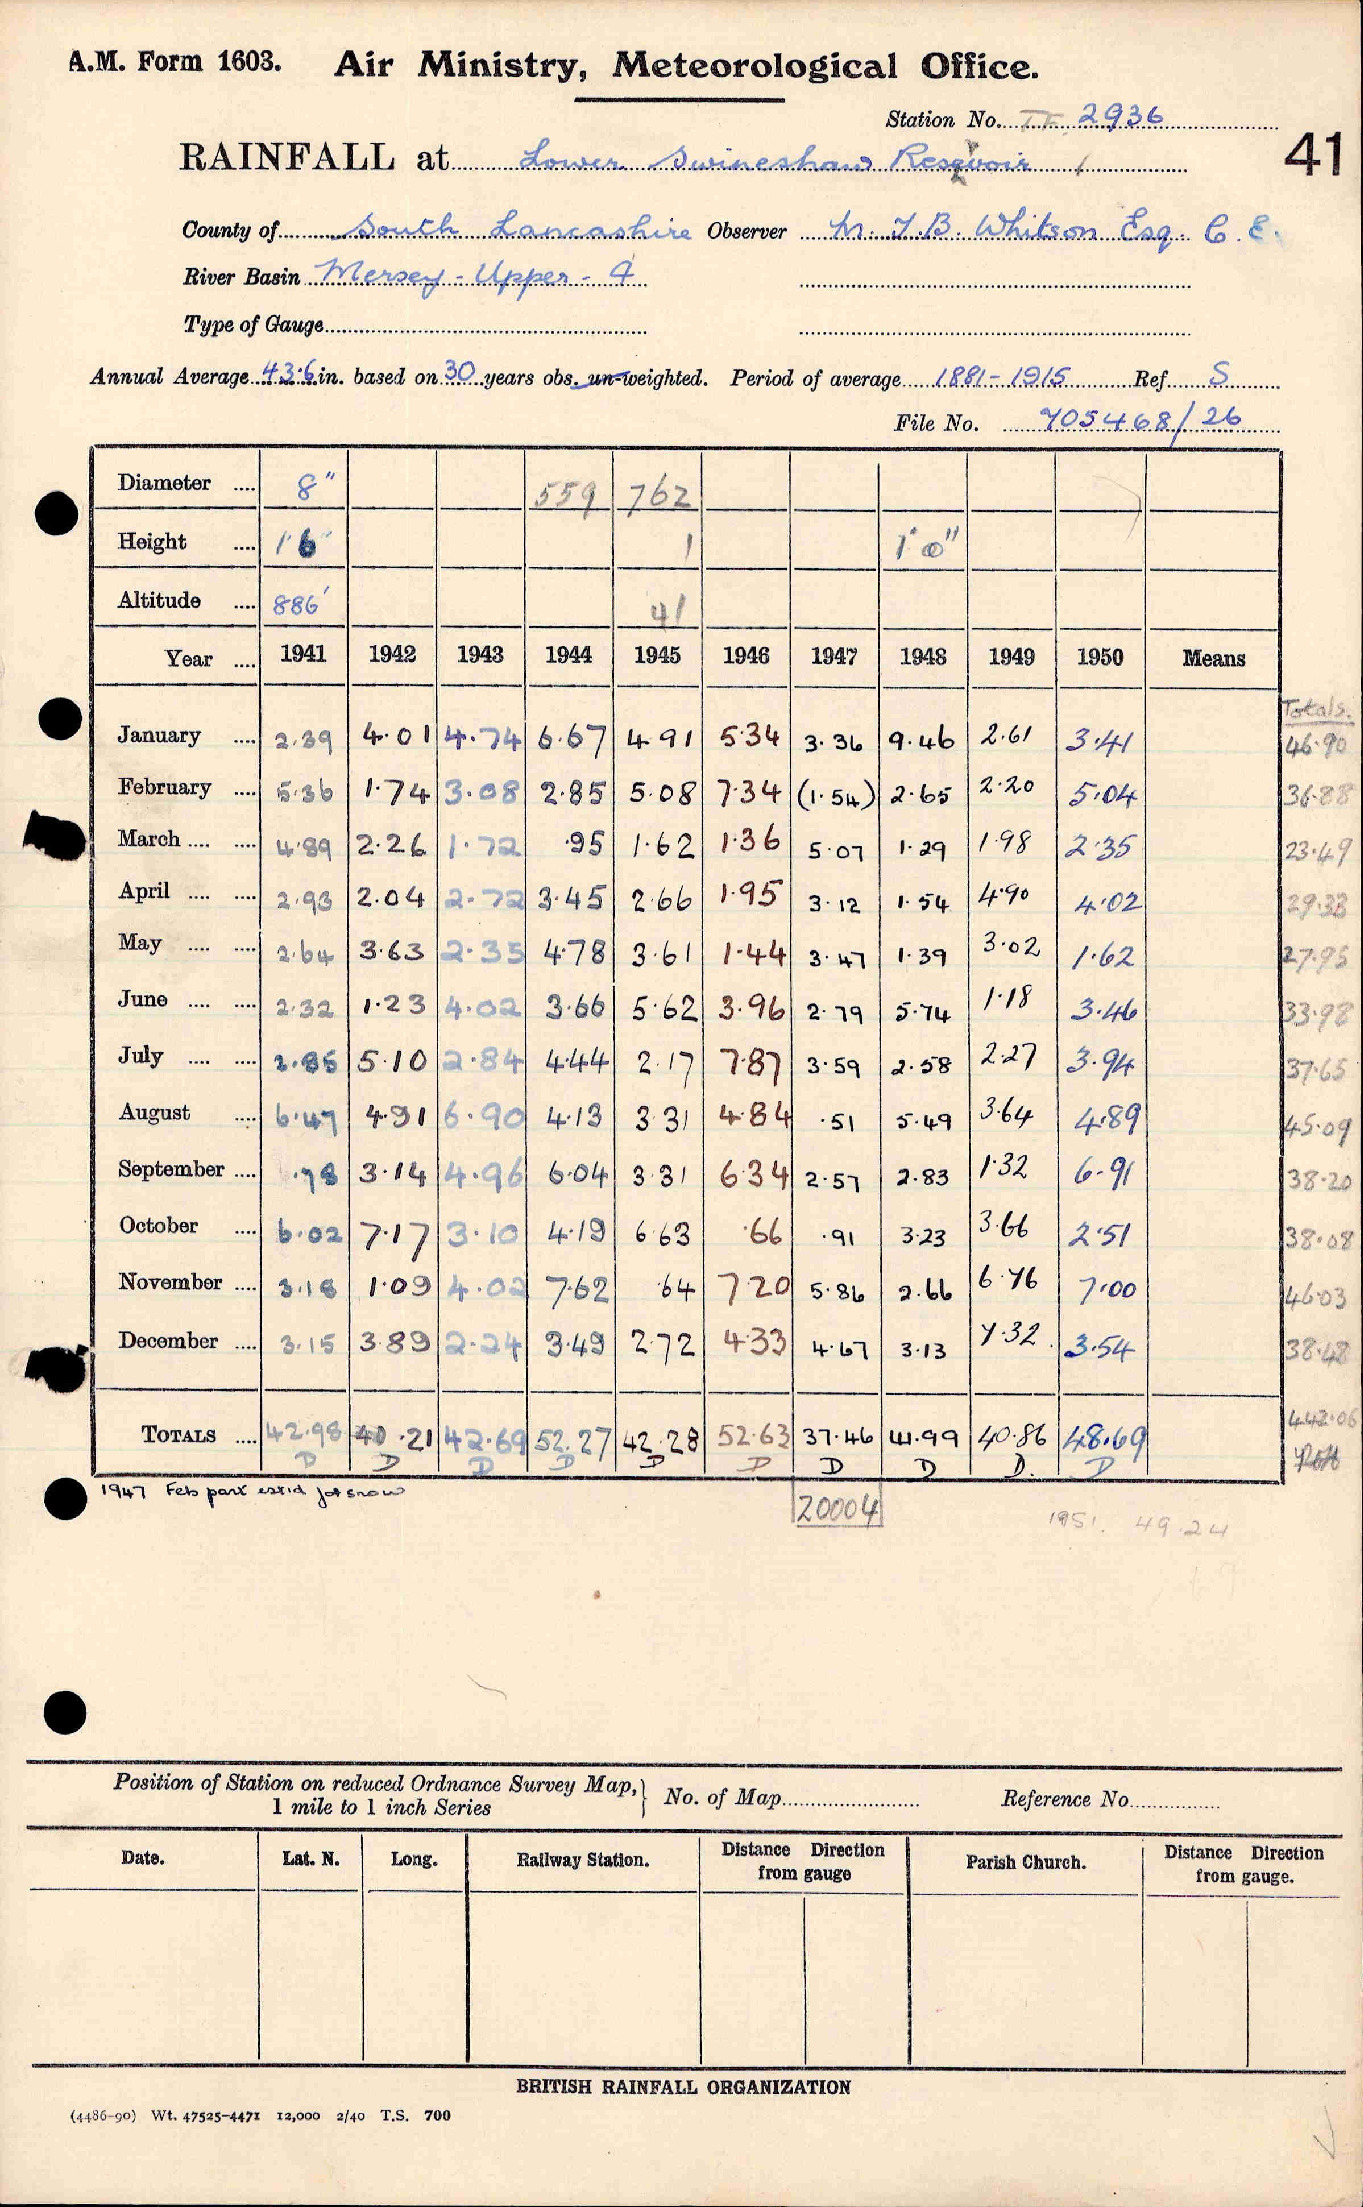 A.M. Form 1603. Air Ministry, Meteorological Office.
Station No. 2936
41
RAINFALL at Lower Swineshaw Reservoir
County of South Lancashire Observer M. J.B. Whitson Esq. C.E.
River Basin Mersey - Upper - 4
Type of Gauge
Annual Average 43.6 in. based on 30 years obs. un-weighted. Period of average 1881-1915 Ref S
File No. 705468/26
Diameter .... 8" 559 762
Height .... 1'6" 1 1'0"
Altitude .... 886' 41
Year .... 1941 1942 1943 1944 1945 1946 1947 1948 1949 1950 Means
Totals.
January .... 2.39 4.01 4.74 6.67 4.91 5.34 3.36 9.46 2.61 3.41 46.90
February .... 5.36 1.74 3.08 2.85 5.08 7.34 (1.54) 2.65 2.20 5.04 36.88
March .... .... 4.89 2.26 1.72 .95 1.62 1.36 5.07 1.29 1.98 2.35 23.49
April .... .... 2.93 2.04 2.72 3.45 2.66 1.95 3.12 1.54 4.90 4.02 29.33
May .... .... 2.64 3.63 2.35 4.78 3.61 1.44 3.47 1.39 3.02 1.62 27.95
June .... .... 2.32 1.23 4.02 3.66 5.62 3.96 2.79 5.74 1.18 3.46 33.98
July .... .... 2.85 5.10 2.84 4.44 2.17 7.87 3.59 2.58 2.27 3.94 37.65
August .... 6.47 4.91 6.90 4.13 3.31 4.84 .51 5.49 3.64 4.89 45.09
September .... .78 3.14 4.96 6.04 3.31 6.34 2.57 2.83 1.32 6.91 38.20
October .... 6.02 7.17 3.10 4.19 6.63 .66 .91 3.23 3.66 2.51 38.08
November .... 3.18 1.09 4.02 7.62 .64 7.20 5.86 2.66 6.76 7.00 46.03
December .... 3.15 3.89 2.24 3.49 2.72 4.33 4.67 3.13 7.32 3.54 38.48
TOTALS .... 42.98 40.21 42.69 52.27 42.28 52.63 37.46 41.99 40.86 48.69 442.06
D D D D D D D D D. D
1947 Feb part est'd for snow
20004
1951. 49.24
Position of Station on reduced Ordnance Survey Map,} No. of Map Reference No
1 mile to 1 inch Series
Date. Lat. N. Long. Railway Station. Distance Direction from gauge Parish Church. Distance Direction from gauge.
BRITISH RAINFALL ORGANIZATION
(4486-90) Wt. 47525-4471 12,000 2/40 T.S. 700